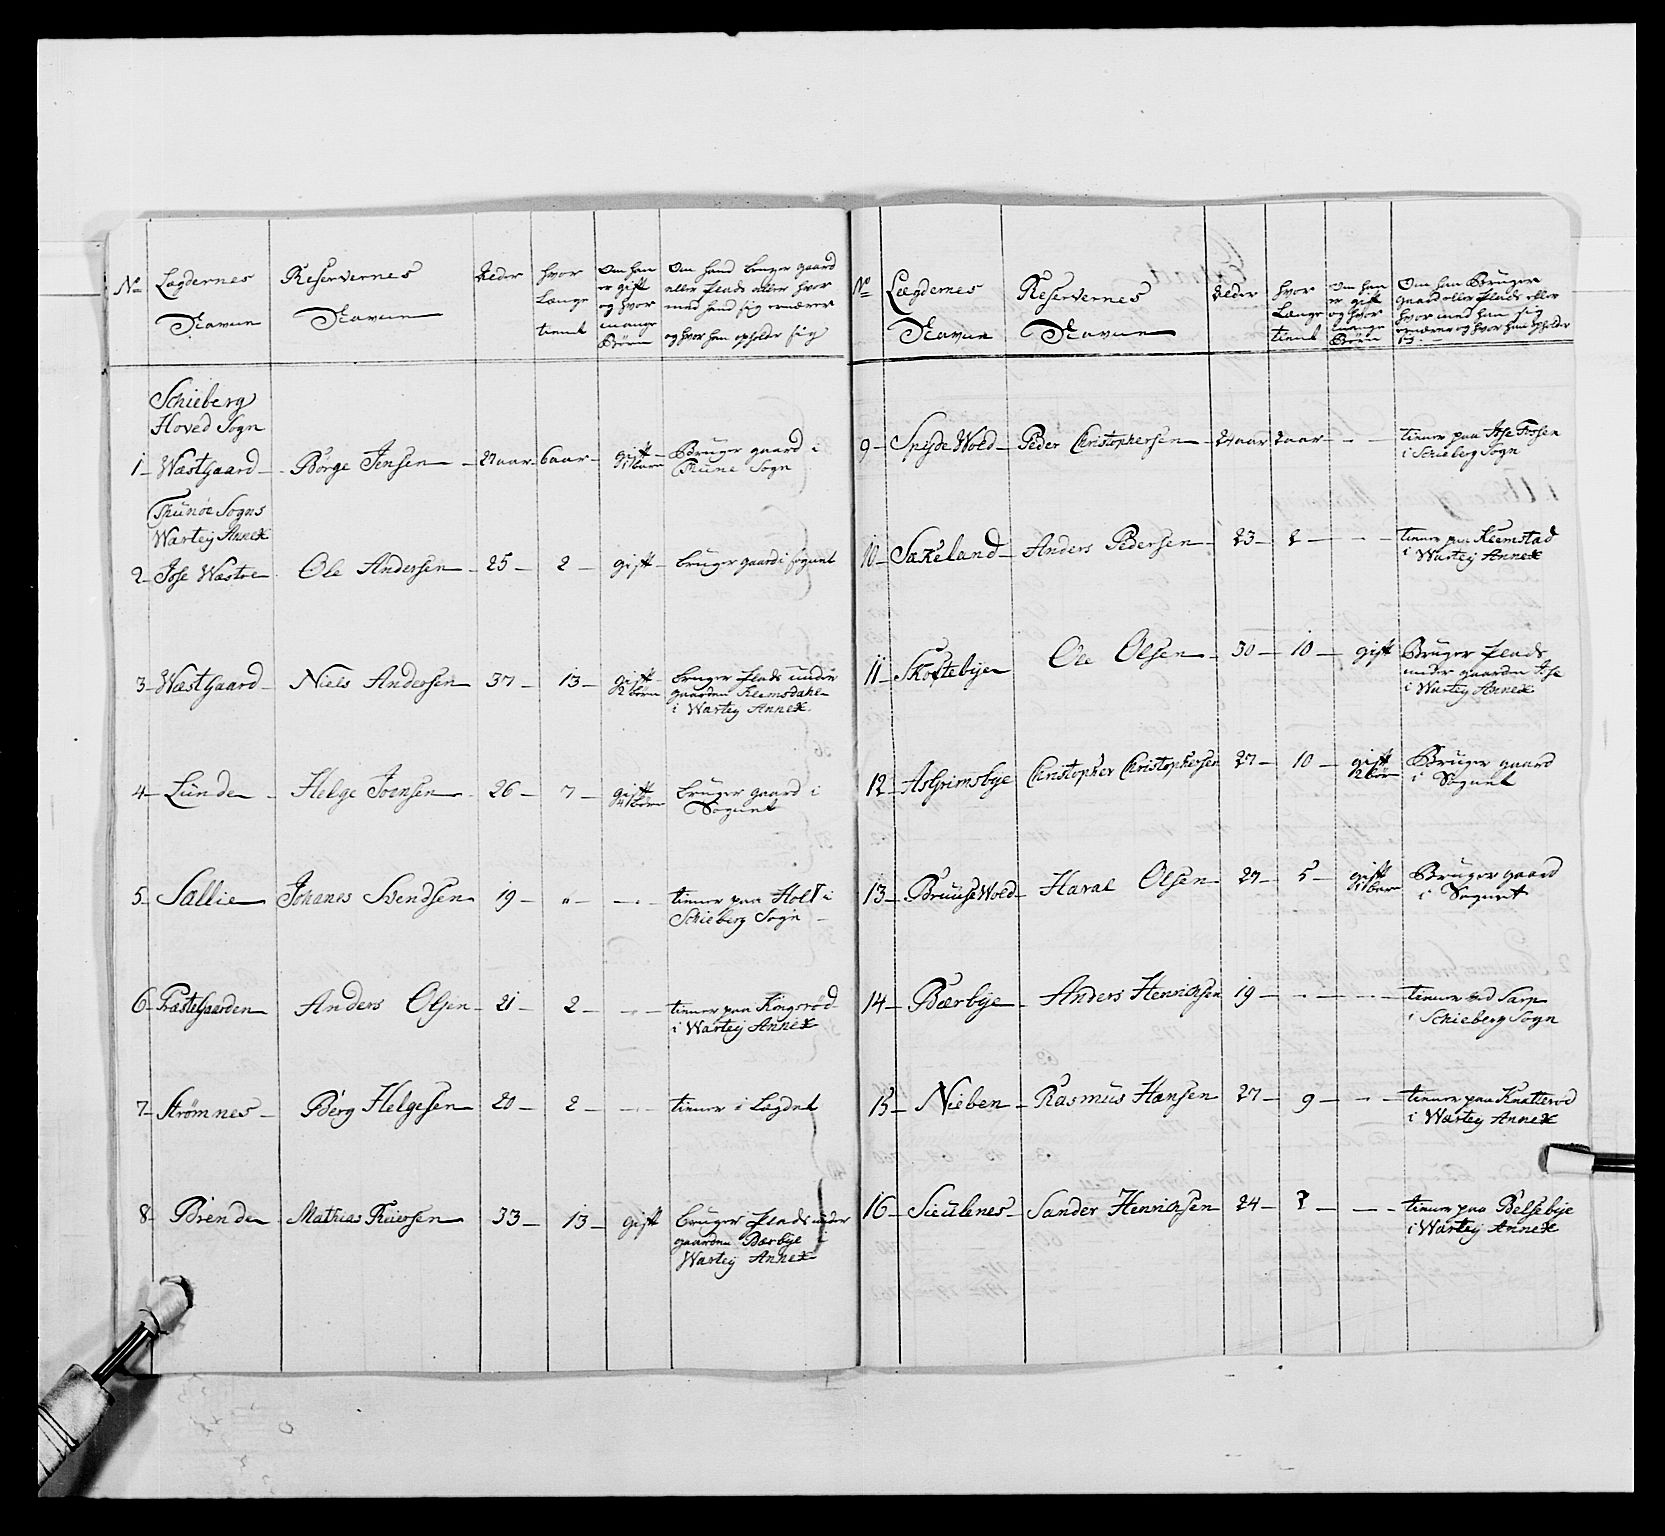 No Lægdernes Navne Reservernes Navne Alder hvor Længe tient Om han er gift og hvor mange Børn Om hand bruger gaard eller Plads eller hvor med hand sig ernærer og hvor han opholder sig
Schieberg
Hoved Sogn
1 - Wæstgaard - Børge Jensen - 27 aar - 6 aar - gift 1 barn Bruger gaard i Rune Sogn
Thunøe Sogns
Warteig Annex
2 - Jose Wæstre Ole Andersen - 25 - 2 - gift - bruger gaard i sognet
3 - Wæstgaard - Niels Andersen - 37 - 13 - gift 2 børn bruger Plads under
gaarden Kleemsdahl
i Warteig Annex
4 - Lunde - Helge Joensen - 26 - 7 - gift børn bruger gaard i
Sognet
5 - Sallie Johanes Svendsen 19 - " - - tiener paa Holt i
Schieberg Sogn
6 - Præstegaarden Anders Olsen - 21 - 2 - - tiener paa Kingsrød
i Warteig Annex
7 - Strømnes - Berg Helgesen - 20 - 2 - - tiener i Lægdet
8 - Brende - Mathias - 33 - 13 - gift bruger Plads under
gaarden Bærbye i
Warteig Annex
No Lægdernes Navne Reservernes Navne Alder hvor Længe tient Om han er gift og hvor mange Børn Om han Bruger gaard eller Plads eller hvor med han sig ernærer og hvor han opholder sig
9 - Spyde Wold - Peder Christophersen - 24 aar 2 aar - - tiener paa
i Schieberg Sogn
10 - Sækeland - Anders Pedersen - 23 - 2 - - tiener paa Kleemstad
i Warteig Annex
11 - Skoftebye Ole Olsen - 30 - 10 - gift Bruger Plads
under gaarden
i Warteig Annex
12 - Asgrimsbye Christopher Christophersen 27 - 10 - gift 2 børn Bruger gaard
i Sognet
13 - Bruuse Wold - Haral Olsen - 27 - 5 - gift 1 barn Bruger gaard
i Sognet
14 - Bærbye - Anders Henrichsen 19 - - - tiener ved Sarp
i Schieberg Sogn
15 - Nieben - Rasmus Hansen 27 - 9 - - tiener paa Knatterød
i Warteig Annex
16 - - Sander Henrichsen 24 - - - tiener paa Belsebye
i Warteig Annex